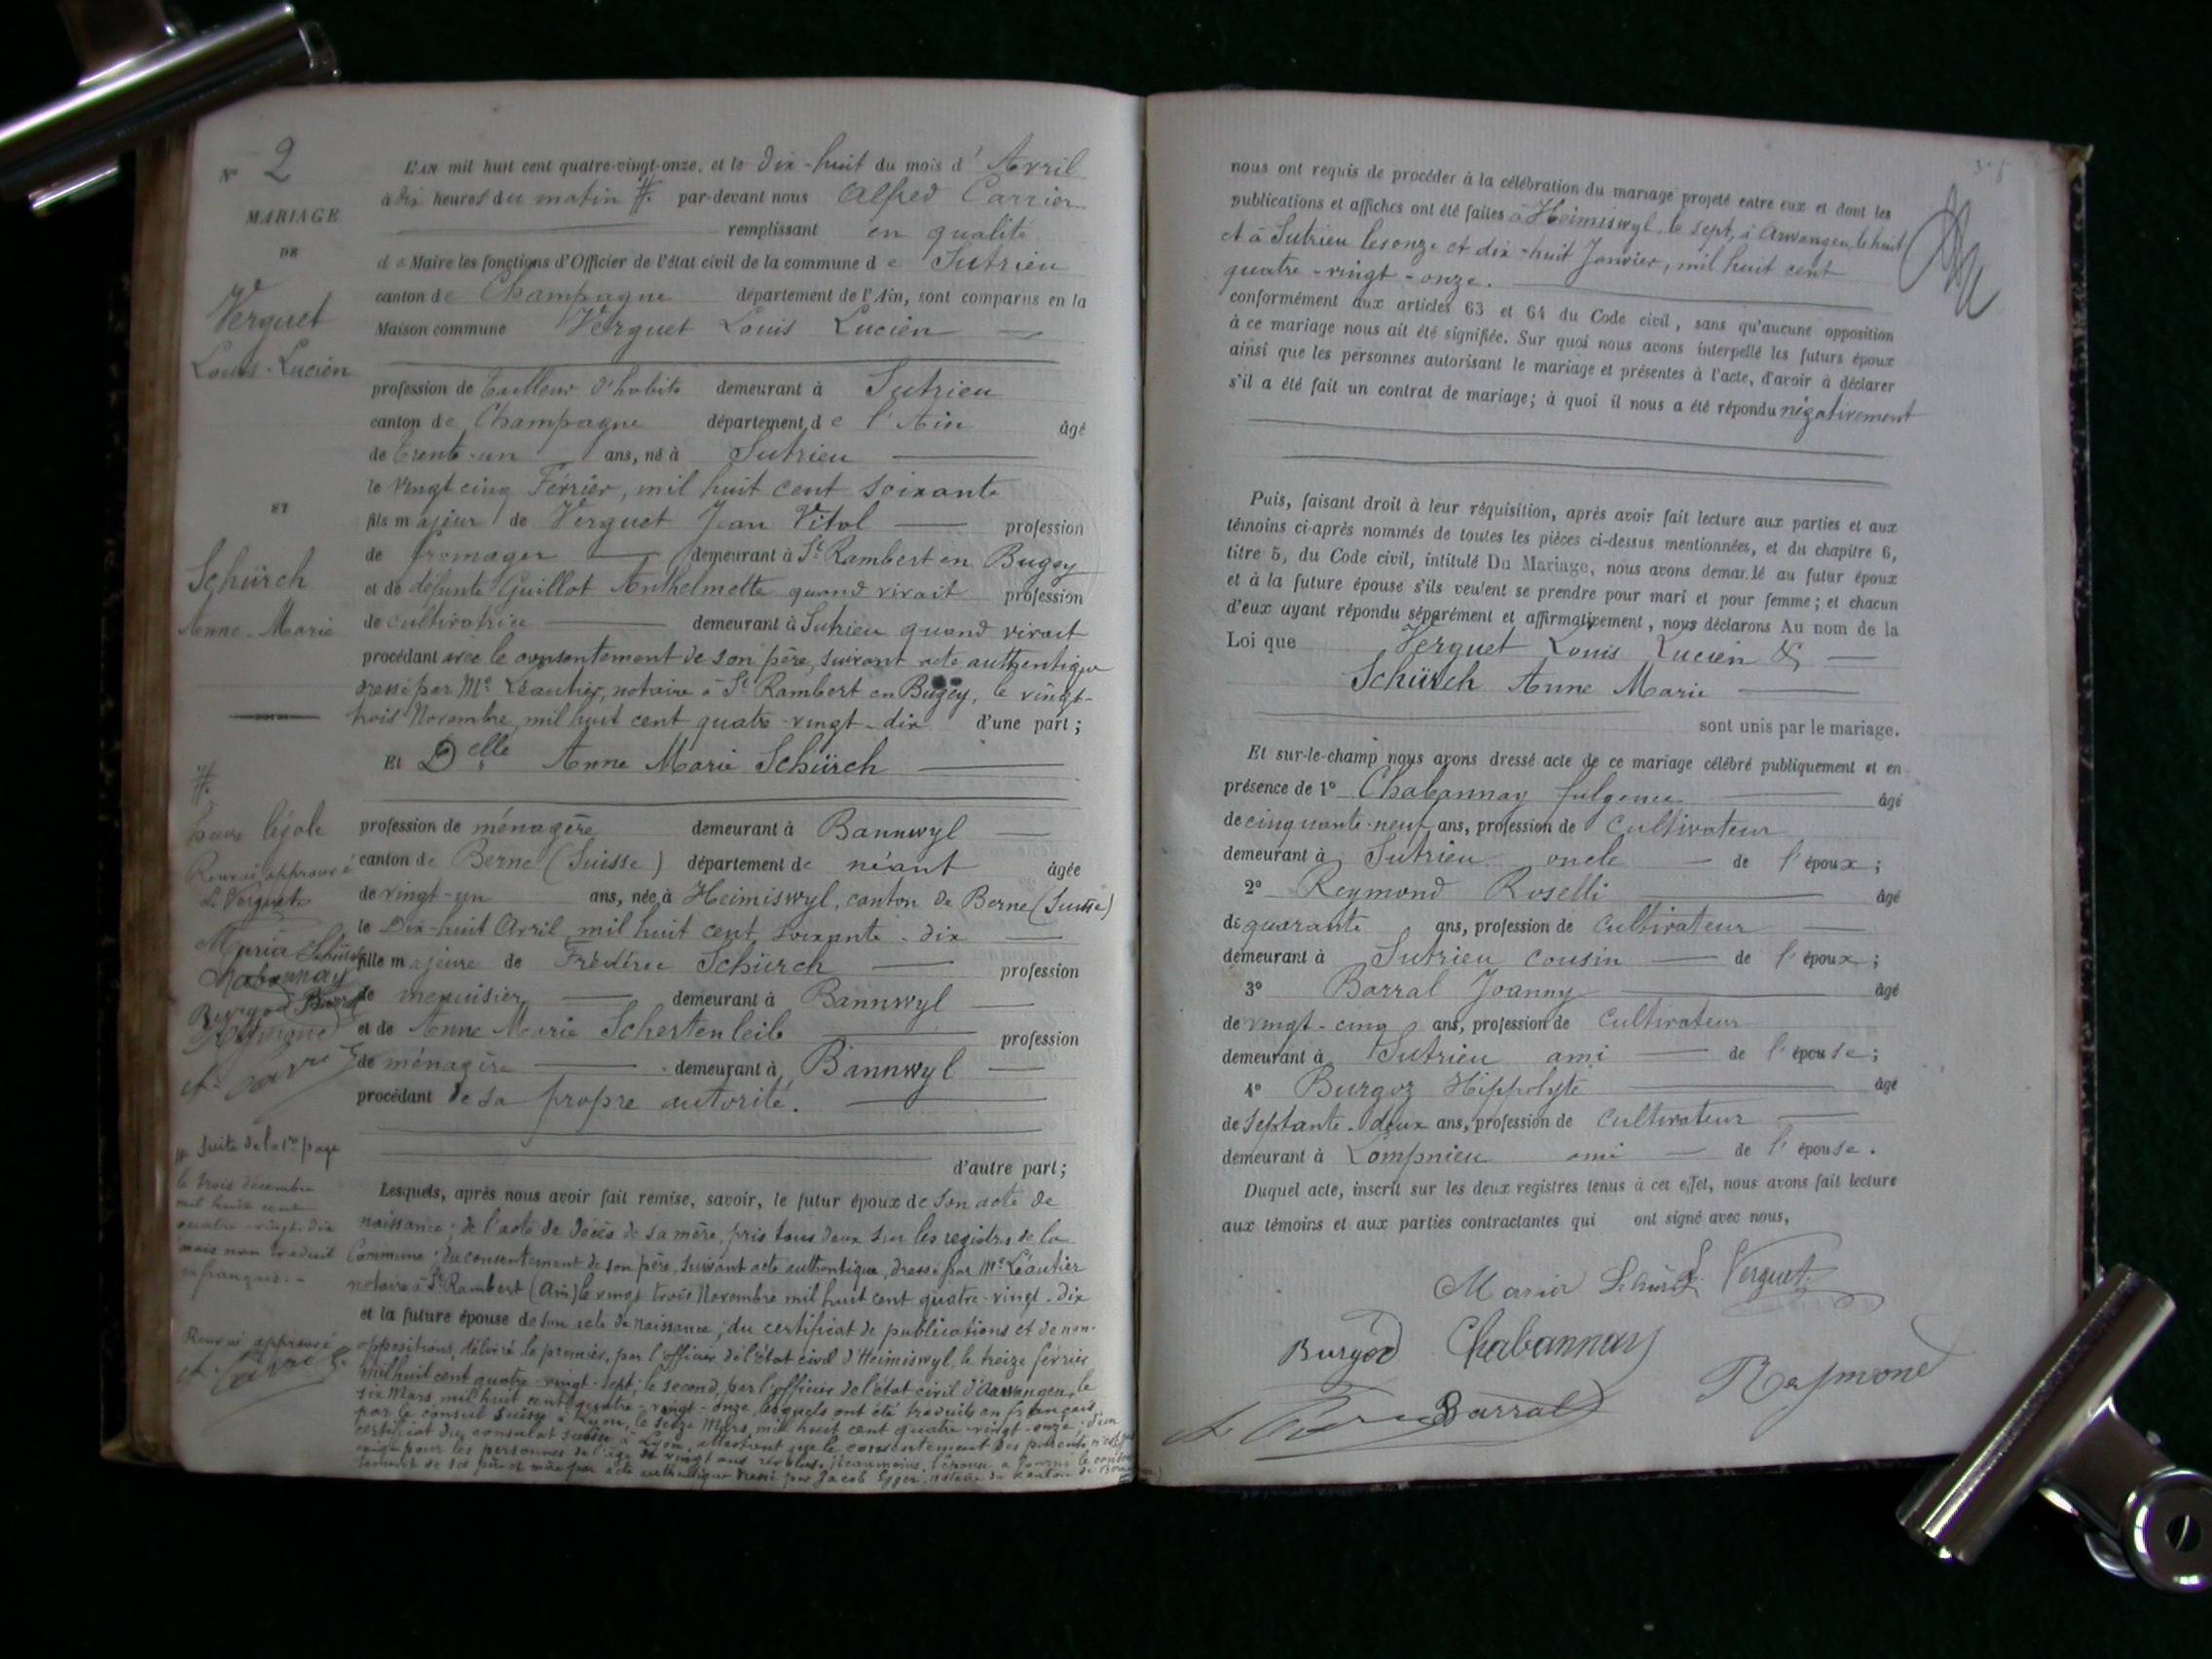 N° 2
MARIAGE
DE
Verguet
Louis-Lucien
ET
Schürch
Anne-Marie
#.
heure légale
Renvoi approuvé
L. Verguet
Maria Schürch
Chabannay
Burgoz Barral
Reymond
le Suite de la 1re page
le trois décembre
mil huit cent
quatre-vingt-dix
mais non traduit
en français.-
Renvoi approuvé
L'AN mil huit cent quatre-vingt-onze, et le dix-huit du mois d'Avril
à dix heures du matin #. par-devant nous Alfred Carrier
remplissant en qualité
de Maire les fonctions d'Officier de l'état civil de la commune de Sutrieu
canton de Champagne département de l'Ain, sont comparus en la
Maison commune Verguet Louis Lucien
profession de tailleur d'habits demeurant à Sutrieu
canton de Champagne département de l'Ain âgé
de trente-un ans, né à Sutrieu
le vingt cinq Février, mil huit cent soixante
fils majeur de Verguet Jean Vital profession
de fromager demeurant à St Rambert en Bugey
et de défunte Guillot Anthelmette quand vivait profession
de cultivatrice demeurant à Sutrieu quand vivait
procédant avec le consentement de son père, suivant acte authentique
dressé par Me Léautier, notaire à St Rambert en Bugey, le vingt-
trois Novembre mil huit cent quatre-vingt-dix d'une part;
Et Delle Anne Marie Schürch
profession de ménagère demeurant à Bannwyl
canton de Berne (Suisse) département de néant âgée
de vingt-un ans, née à Heimiswyl, canton de Berne (Suisse)
le Dix-huit Avril mil huit cent soixante-dix
fille majeure de Frédéric Schürch profession
de menuisier demeurant à Bannwyl
et de Anne Marie Schertenleib profession
de ménagère demeurant à Bannwyl
procédant de sa propre autorité.
d'autre part;
Lesquels, après nous avoir fait remise, savoir, le futur époux de son acte de
naissance; de l'acte de décès de sa mère, pris tous deux sur les registres de la
Commune; du consentement de son père, suivant acte authentique, dressé par Me Léautier
notaire à St Rambert (Ain) le vingt trois Novembre mil huit cent quatre-vingt-dix
et la future épouse de son acte de naissance; du certificat de publications et de non-
oppositions, délivré le premier, par l'officier de l'état civil d'Heimiswyl, le treize février
mil huit cent quatre-vingt-sept; le second, par l'officier de l'état civil d'Aarwangen, le
six Mars, mil huit cent quatre-vingt-onze, lesquels ont été traduits en français,
par le consul suisse à Lyon, le seize Mars, mil huit cent quatre-vingt-onze; d'un
certificat du consulat suisse à Lyon, attestant que le consentement des parents n'est pas
exigé pour les personnes de l'âge de vingt ans révolus; néanmoins, l'épouse a fourni le consen-
tement de ses père et mère par acte authentique dressé par Jacob Egger, notaire du canton de Berne
nous ont requis de procéder à la célébration du mariage projeté entre eux et dont les
publications et affiches ont été faites à Heimiswyl, le sept, à Arwangen, le huit
et à Sutrieu les onze et dix-huit Janvier, mil huit cent
quatre-vingt-onze.
conformément aux articles 63 et 64 du Code civil, sans qu'aucune opposition
à ce mariage nous ait été signifiée. Sur quoi nous avons interpellé les futurs époux
ainsi que les personnes autorisant le mariage et présentes à l'acte, d'avoir à déclarer
s'il a été fait un contrat de mariage; à quoi il nous a été répondu négativement
Puis, faisant droit à leur réquisition, après avoir fait lecture aux parties et aux
témoins ci-après nommés de toutes les pièces ci-dessus mentionnées, et du chapitre 6,
titre 5, du Code civil, intitulé Du Mariage, nous avons demandé au futur époux
et à la future épouse s'ils veulent se prendre pour mari et pour femme; et chacun
d'eux ayant répondu séparément et affirmativement, nous déclarons Au nom de la
Loi que Verguet Louis Lucien &
Schürch Anne Marie
sont unis par le mariage.
Et sur-le-champ nous avons dressé acte de ce mariage célébré publiquement et en
présence de 1° Chabannay fulgence âgé
de cinquante-neuf ans, profession de cultivateur
demeurant à Sutrieu oncle de l'époux;
2° Reymond Roselli âgé
de quarante ans, profession de cultivateur
demeurant à Sutrieu cousin de l'époux;
3° Barral Joanny âgé
de vingt-cinq ans, profession de cultivateur
demeurant à Sutrieu ami de l'épouse;
4° Burgoz Hippolyte âgé
de septante-deux ans, profession de cultivateur
demeurant à Lompnieu ami de l'épouse.
Duquel acte, inscrit sur les deux registres tenus à cet effet, nous avons fait lecture
aux témoins et aux parties contractantes qui ont signé avec nous,
Maria Schürch L. Verguet
Burgoz Chabannay
Reymond
Barral